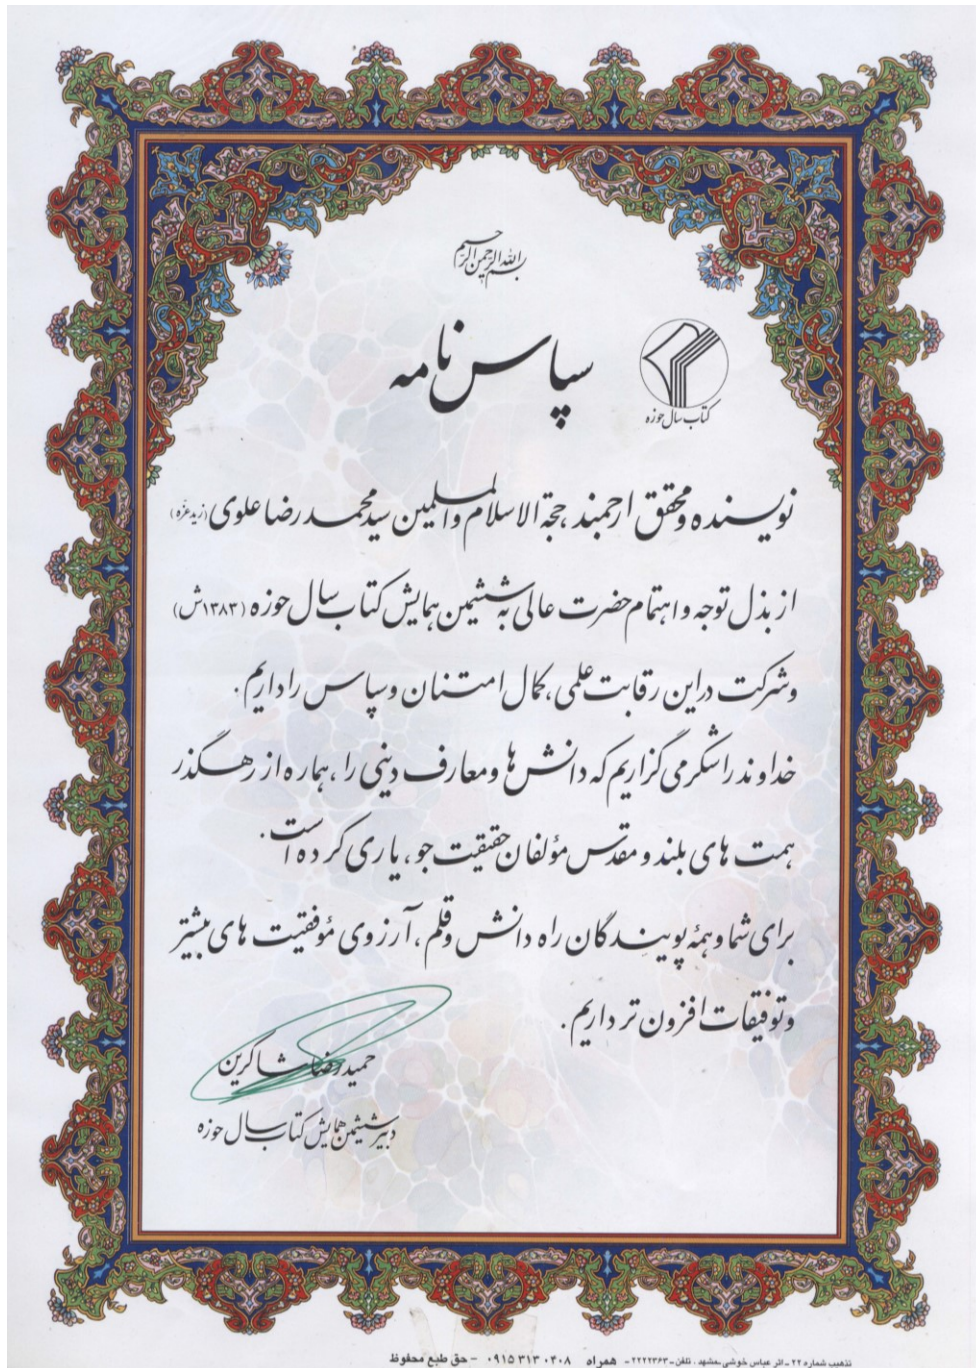 بسم الله الرحمن الرحیم
سپاس نامه
کتاب سال حوزه
نویسنده و محقق ارجمند، حجة الاسلام والمسلمین سید محمد رضا علوی (زید عزّه)
از بذل توجه و اهتمام حضرت عالی به ششمین همایش کتاب سال حوزه (۱۳۸۳ش)
و شرکت در این رقابت علمی، کمال امتنان و سپاس را داریم.
خداوند را شکر می گزاریم که دانش ها و معارف دینی را، هماره از رهگذر
همت های بلند و مقدس مؤلفان حقیقت جو، یاری کرده است.
برای شما و همهٔ پویندگان راه دانش و قلم، آرزوی موفقیت های بیشتر
و توفیقات افزون تر داریم.
حمید رضا شاکرین
دبیر ششمین همایش کتاب سال حوزه
تذهیب شماره ۲۲ ـ اثر عباس خوشی ـ مشهد . تلفن ـ ۲۲۲۲۳۶۳ ـ همراه ۰۹۱۵ ۳۱۳ ۰۴۰۸ - حق طبع محفوظ